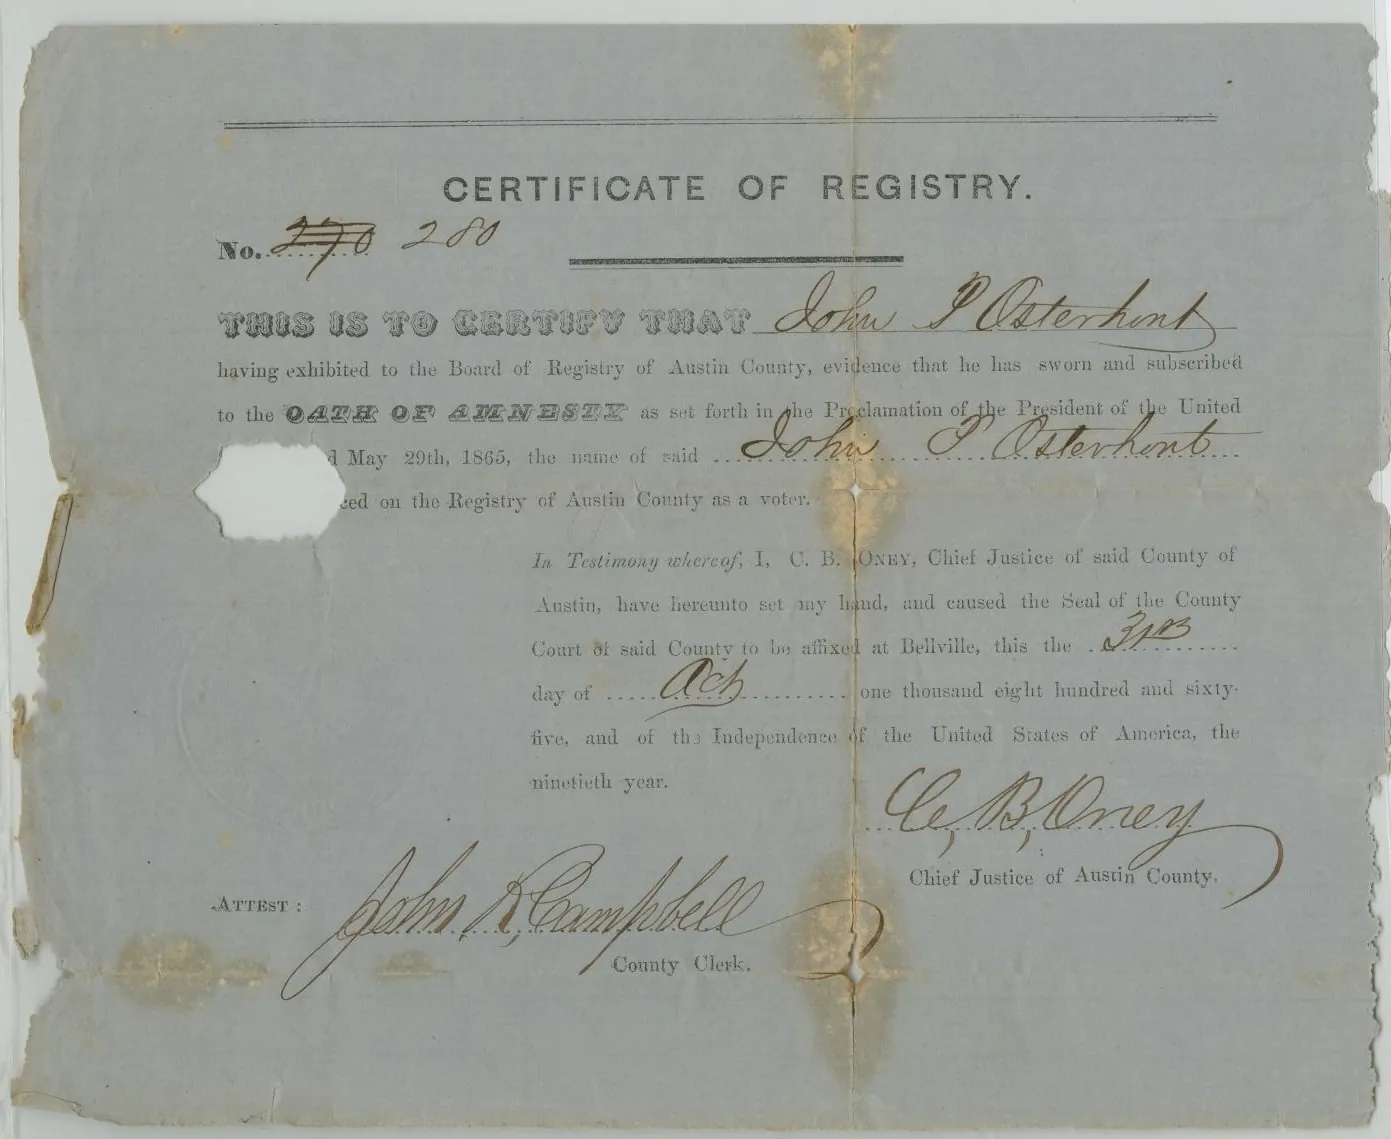 CERTIFICATE OF REGISTRY.
No. 270 280
THIS IS TO CERTIFY THAT John P Osterhout
having exhibited to the Board of Registry of Austin County, evidence that he has sworn and subscribed
to the OATH OF AMNESTY as set forth in the Proclamation of the President of the United
d May 29th, 1865, the name of said John P Osterhout
ced on the Registry of Austin County as a voter.
In Testimony whereof, I, C. B. ONEY, Chief Justice of said County of
Austin, have hereunto set my hand, and caused the Seal of the County
Court of said County to be affixed at Bellville, this the 31st
day of Oct one thousand eight hundred and sixty-
five, and of the Independence of the United States of America, the
ninetieth year.
C, B, Oney
Chief Justice of Austin County.
ATTEST: John R, Campbell
County Clerk.